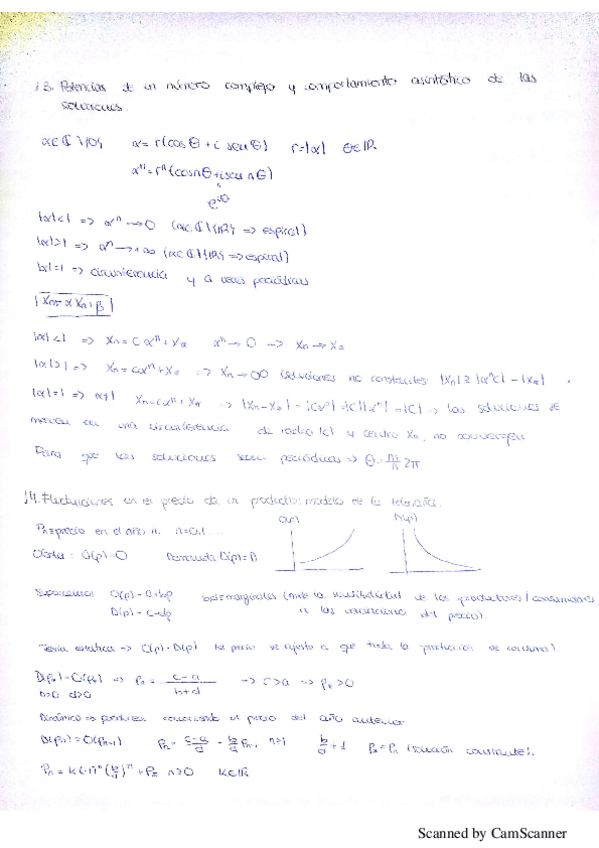 13. Potencias de un número complejo y comportamiento asintótico de las
soluciones.
α∈ℂ\{0} α=r(cosθ+i senθ) r=|α| θ∈ℝ.
αⁿ=rⁿ(cosnθ+i sen nθ)
e^{iθ}
|α|<1 => αⁿ→0 (α∈ℂ\{ℝ} => espiral)
|α|>1 => αⁿ→+∞ (α∈ℂ\{ℝ} => espiral)
|α|=1 => circunferencia y a veces periódicas
|α|<1 => Xn=Cαⁿ+X* αⁿ→0 → Xn→X*
|α|>1 => Xn=Cαⁿ+X* => Xn→∞ (soluciones no constantes |Xn|≥|αⁿC|-|X*|
|α|=1 => α≠1 Xn=Cαⁿ+X* → |Xn-X*|=|Cαⁿ|=|C||αⁿ|=|C| → las soluciones se
mueven en una circunferencia de radio |C| y centro X*, no convergen
Para que las soluciones sean periódicas => θ= 2π
14. Fluctuaciones en el precio de un producto: modelo de la telaraña.
Pn=precio en el año n. n=0,1....
O(p) D(p)
Oferta: O(p)=O Demanda D(p)=D
O(p)=a+bp b,d=marginales (mide la sensibilidad de los productores/consumidores
D(p)=c-dp a las variaciones del precio).
Teoría estática → O(p)=D(p) (el precio se ajusta a que toda la producción se consuma).
D(p*)=O(p*) => p*= c-a / b+d → c>a → p*>0
b>0 d>0
Dinámico => producen conociendo el precio del año anterior
D(pn)=O(pn-1) Pn= c-a/d - b/d Pn-1, n≥1 b/d≠1 P*=Pn (solución constante).
Pn=k(-1)ⁿ(b/d)ⁿ+P* n≥0 k∈ℝ
Scanned by CamScanner